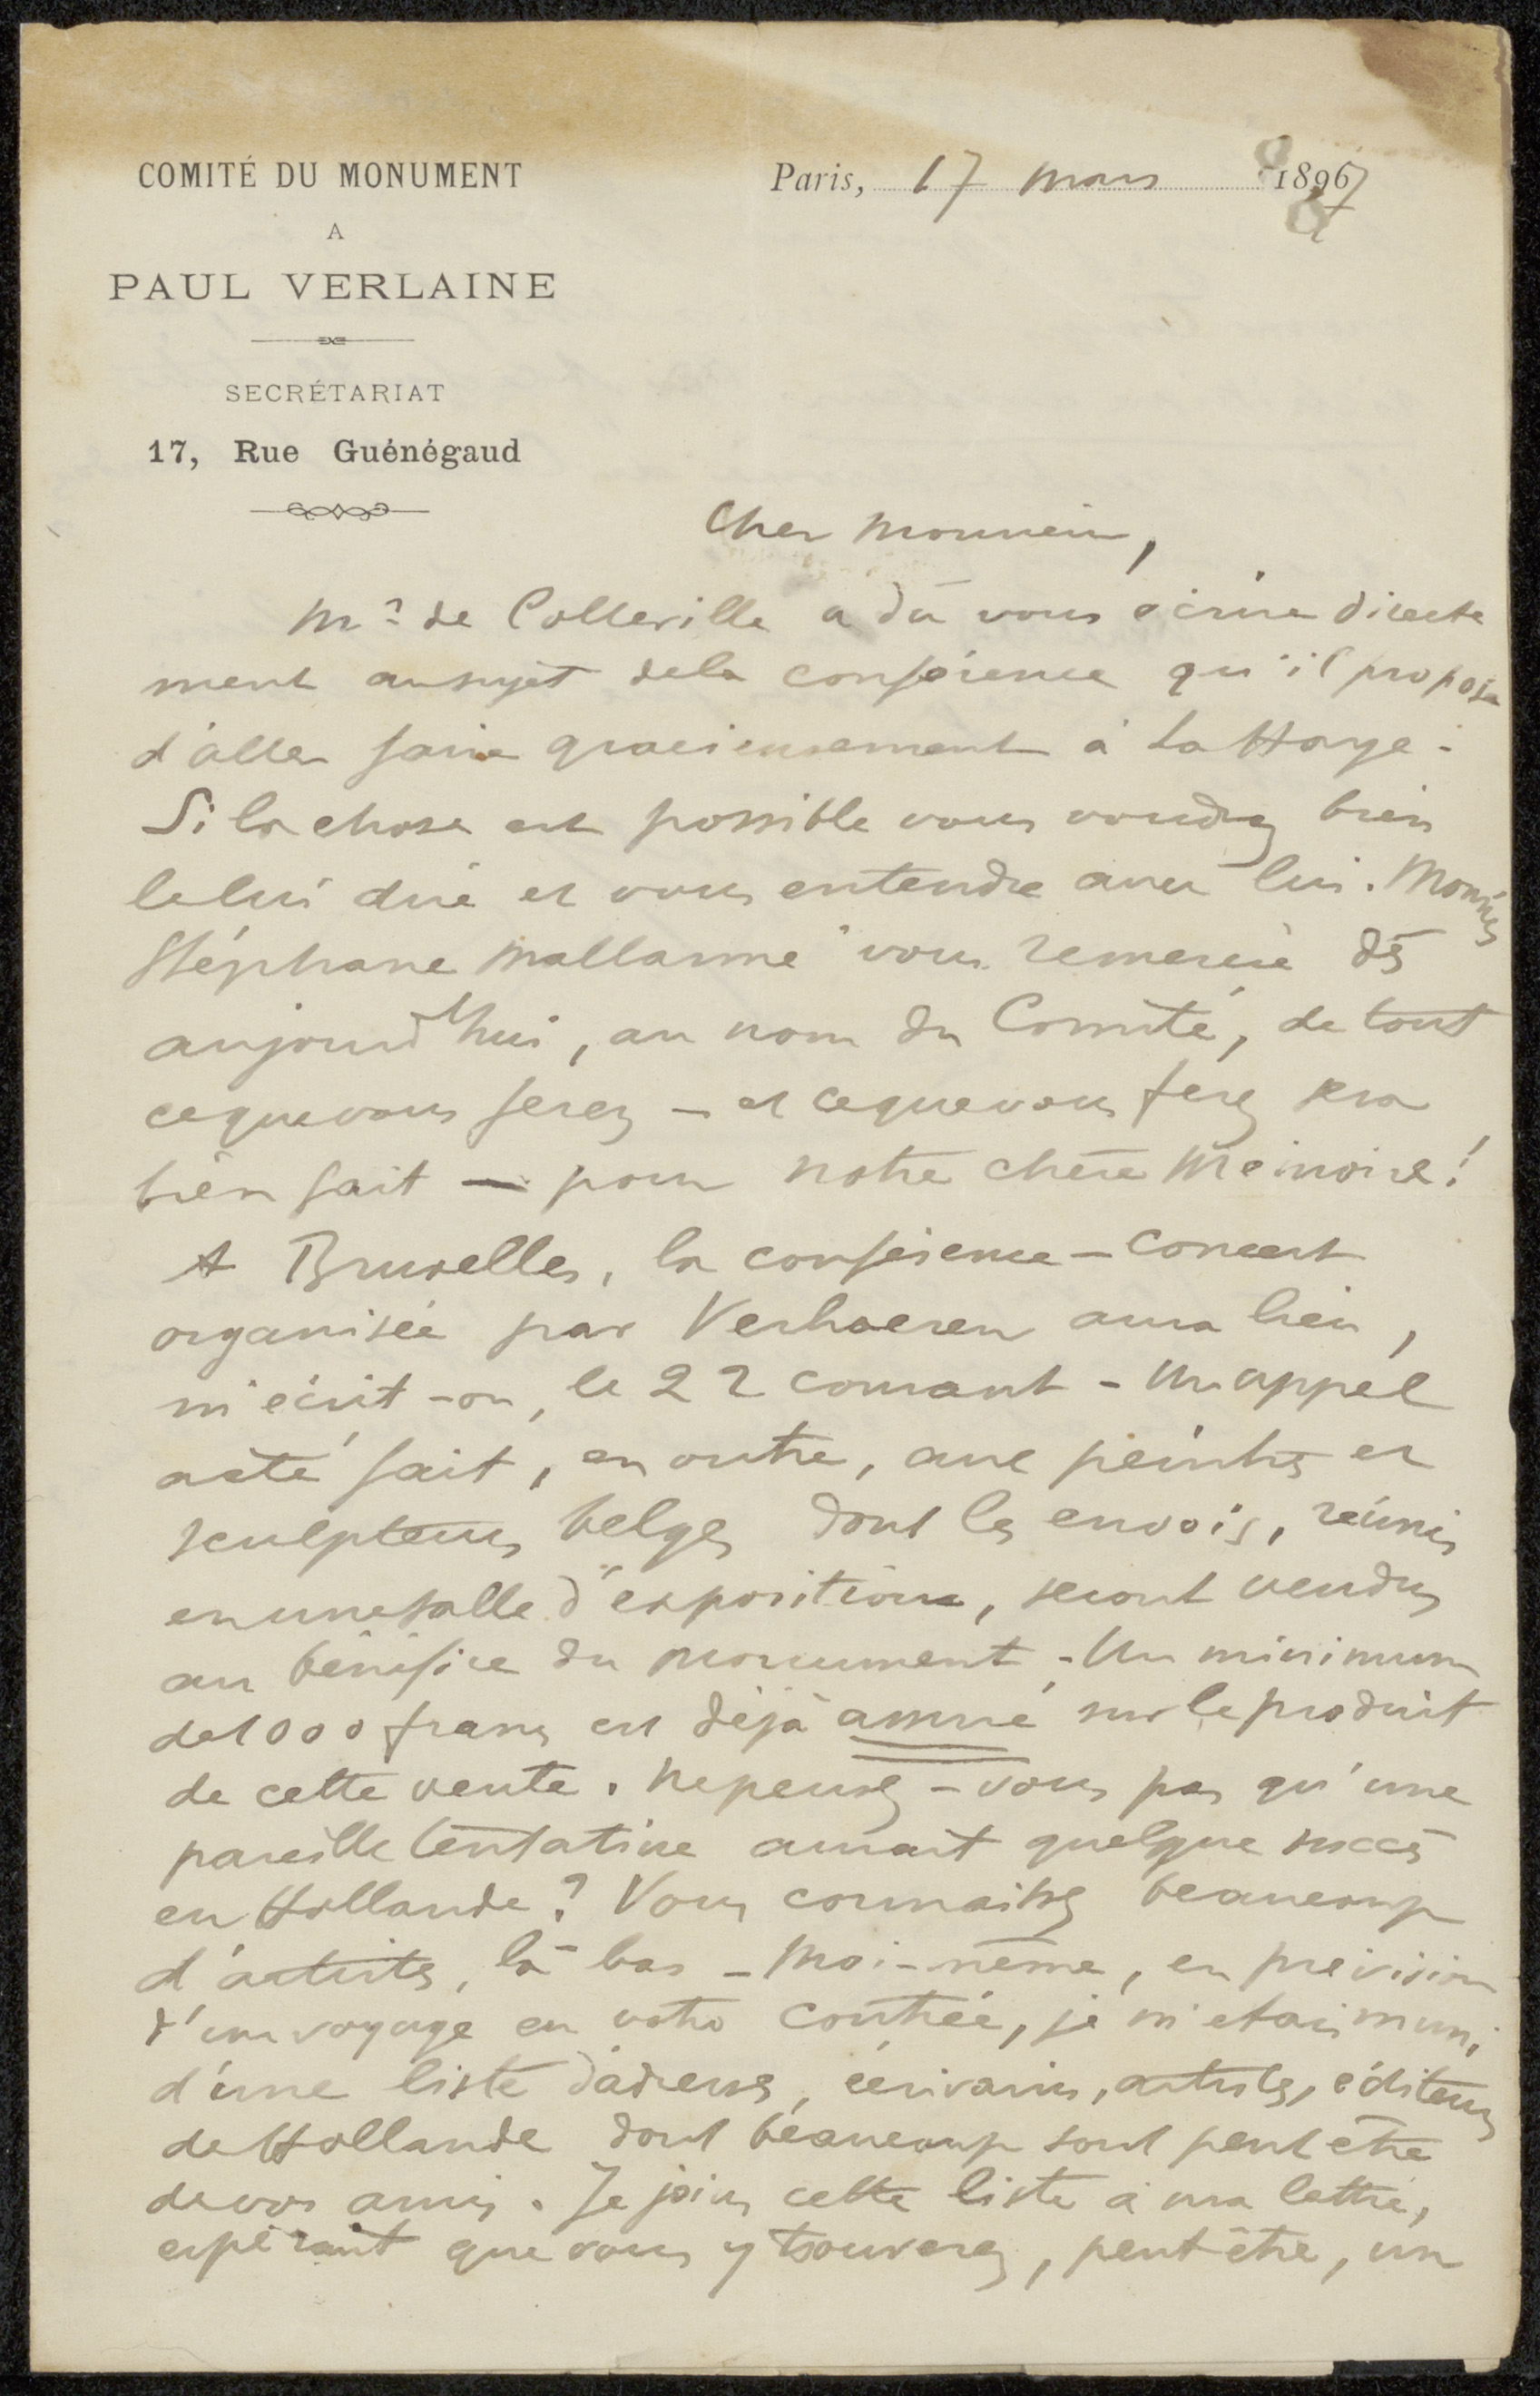 COMITÉ DU MONUMENT
A
PAUL VERLAINE
SECRÉTARIAT
17, Rue Guénégaud
Paris, 17 mars 1897
Cher Monsieur,
Mr de Colleville a dû vous écrire directe
ment au sujet de la conférence qu'il propose
d'aller faire gracieusement à La Haye.
Si la chose est possible vous voudrez bien
le lui dire et vous entendre avec lui. Monsieur
Stéphane Mallarmé vous remercie dès
aujourd'hui, au nom du Comité, de tout
ce que vous ferez – et ce que vous ferez sera
bien fait — pour notre chère Mémoire!
A Bruxelles, la conférence – concert
organisée par Verhaeren aura lieu,
m'écrit-on, le 22 courant – Un appel
a été fait, en outre, aux peintres et
sculpteurs belges dont les envois, réunis
en une salle d'exposition, seront vendus
au bénéfice du monument – Un minimum
de 1000 francs est déjà assuré sur le produit
de cette vente. Ne pensez-vous pas qu'une
pareille tentative aurait quelque succès
en Hollande? Vous connaissez beaucoup
d'artistes, là bas – Moi-même, en prévision
d'un voyage en votre contrée, je m'étais muni
d'une liste d'adresses, écrivains, artistes, éditeurs
de Hollande dont beaucoup sont peut être
de vos amis. Je joins cette liste à ma lettre,
espérant que vous y trouverez, peut-être, un